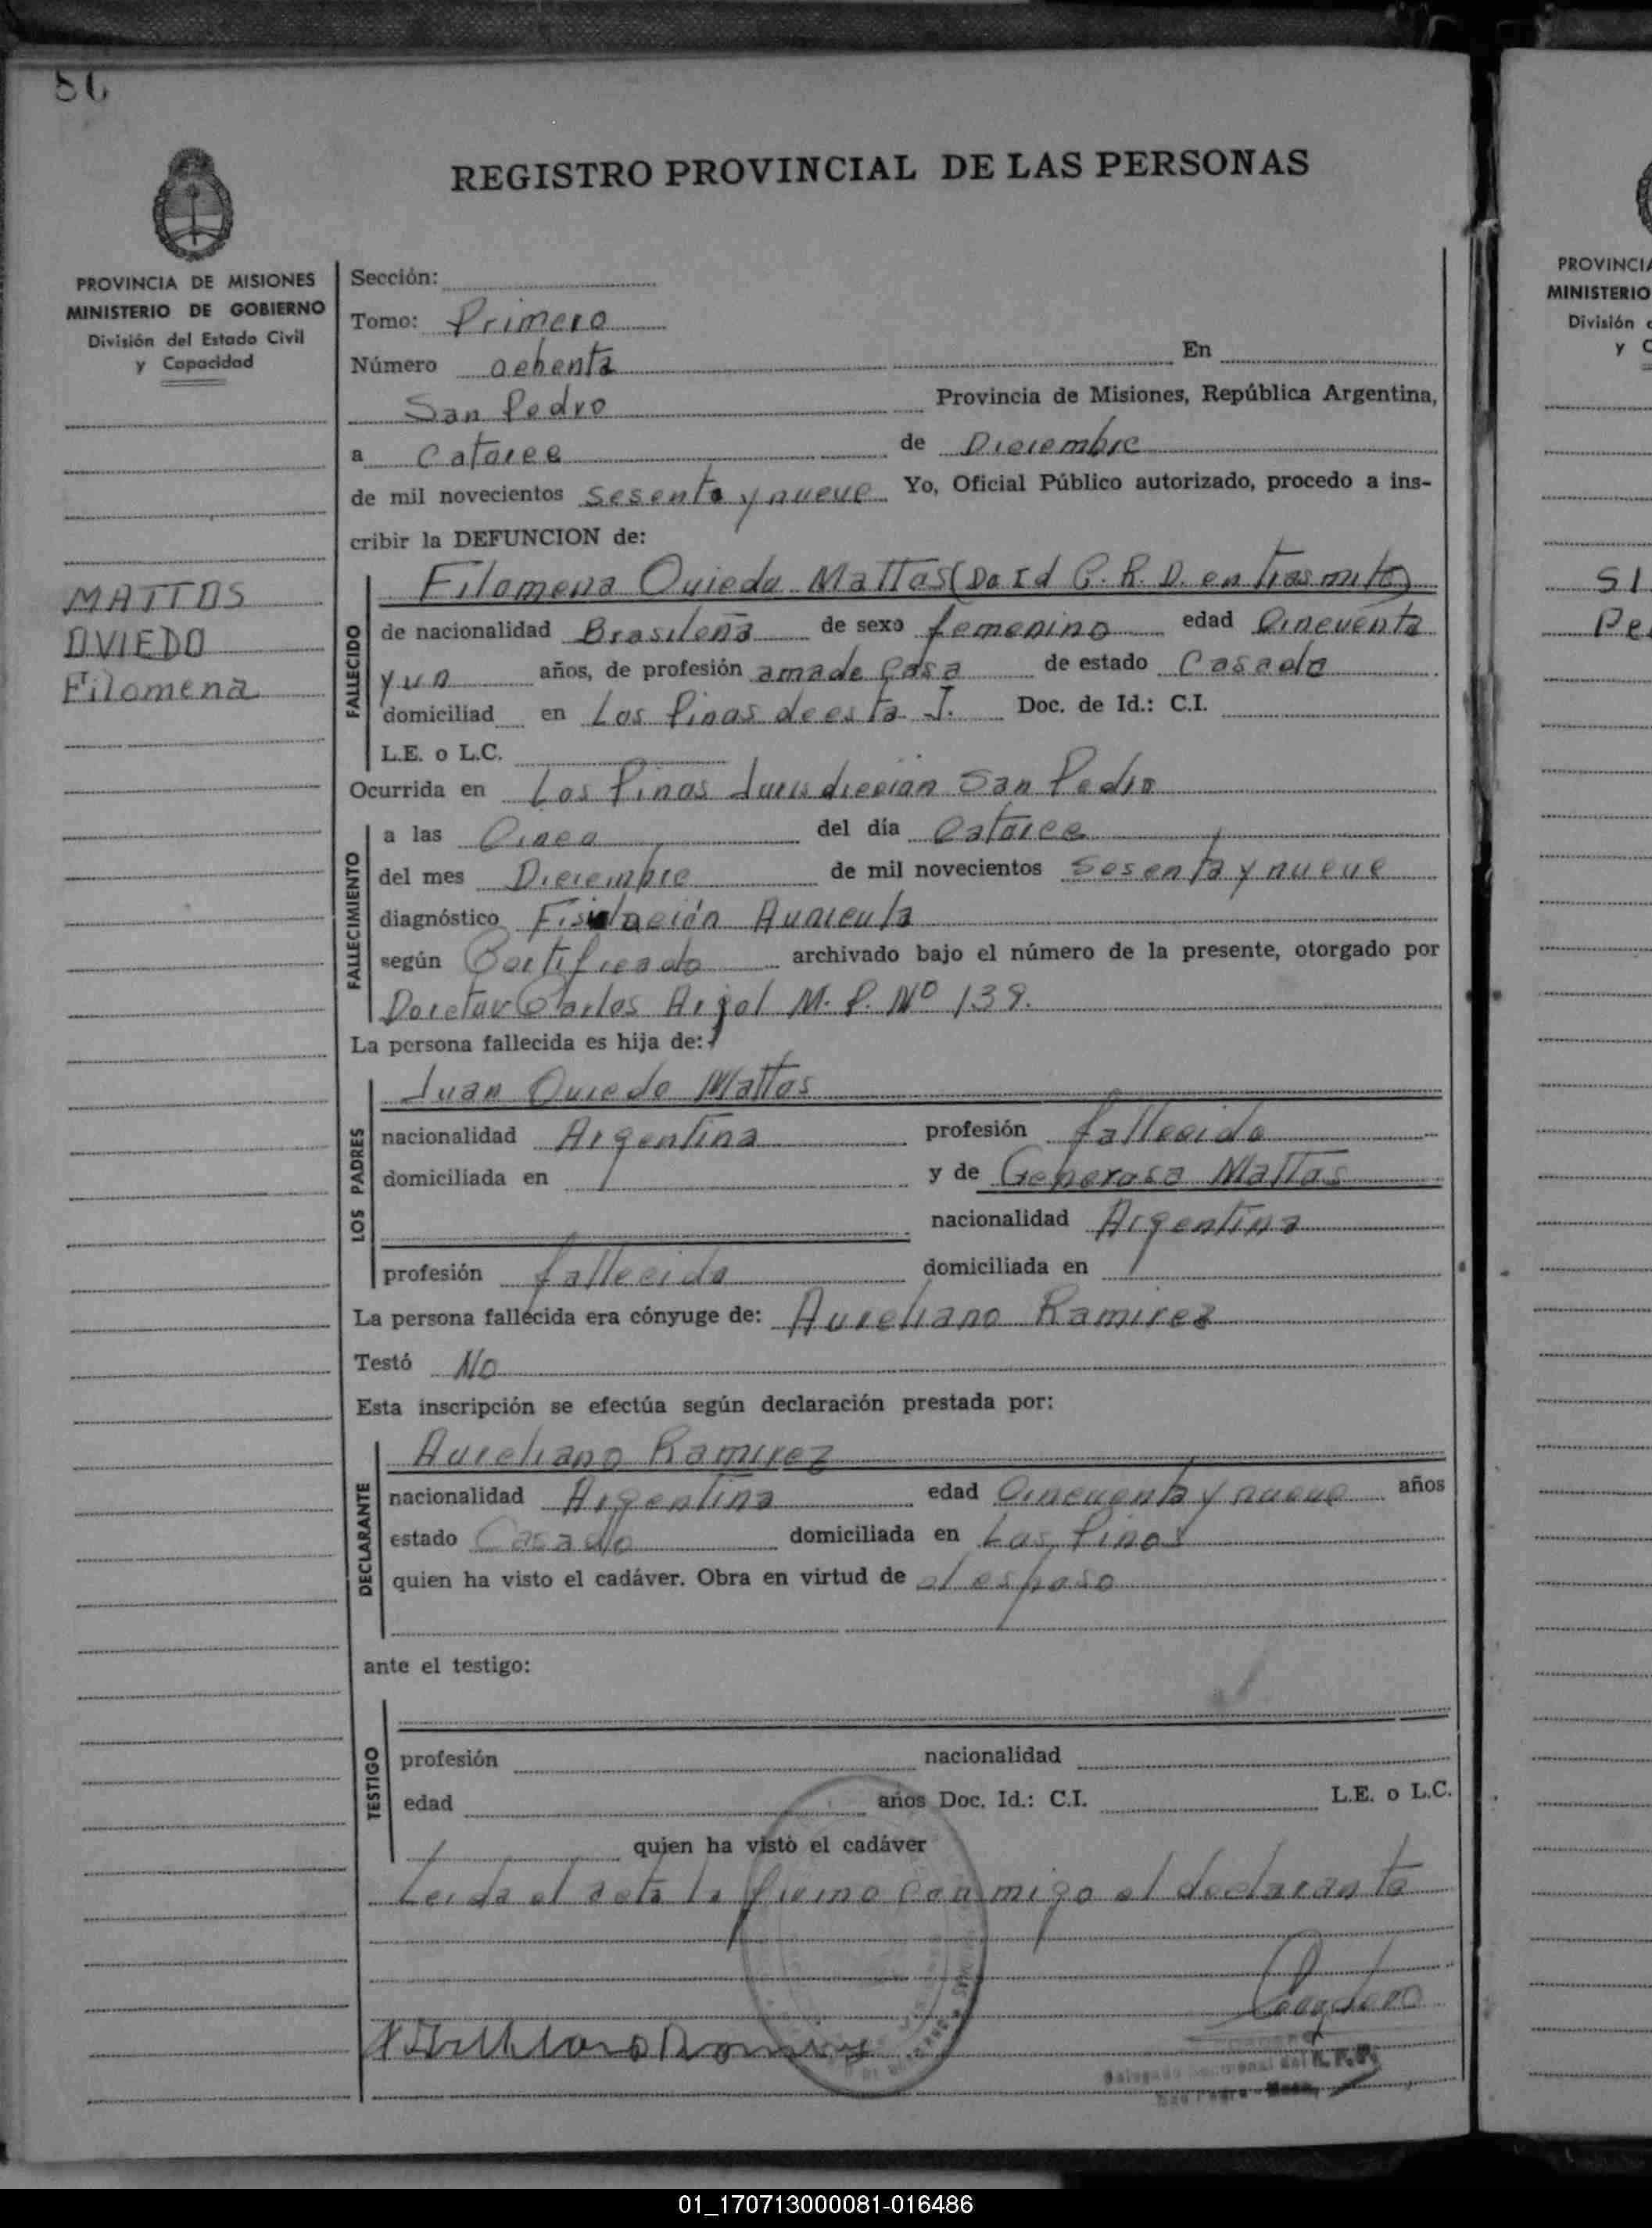 80
REGISTRO PROVINCIAL DE LAS PERSONAS
PROVINCIA DE MISIONES
MINISTERIO DE GOBIERNO
División del Estado Civil
y Capacidad
MATTOS
OVIEDO
Filomena
Sección:
Tomo: Primero
Número ochenta En
San Pedro Provincia de Misiones, República Argentina,
a Catorce de Diciembre
de mil novecientos Sesenta y nueve Yo, Oficial Público autorizado, procedo a ins-
cribir la DEFUNCION de:
FALLECIDO
Filomena Oviedo Mattos (Do Id C. R. D. en trasmite)
de nacionalidad Brasileña de sexo femenino edad Cincuenta
y un años, de profesión ama de Casa de estado Casada
domiciliad en Los Pinos de esta J. Doc. de Id.: C.I.
L.E. o L.C.
Ocurrida en Los Pinos Jurisdiccion San Pedro
FALLECIMIENTO
a las Cinco del día Catorce
del mes Diciembre de mil novecientos Sesenta y nueve
diagnóstico
según Certificado archivado bajo el número de la presente, otorgado por
Doctor Carlos Arjol M. P. Nº 139.
La persona fallecida es hija de:
LOS PADRES
Juan Oviedo Mattos
nacionalidad Argentina profesión fallecido
domiciliada en y de Generosa Mattos
nacionalidad Argentina
profesión fallecida domiciliada en
La persona fallecida era cónyuge de: Aureliano Ramirez
Testó No
Esta inscripción se efectúa según declaración prestada por:
DECLARANTE
Aureliano Ramirez
nacionalidad Argentina edad Cincuenta y nueve años
estado Casado domiciliada en Los Pinos
quien ha visto el cadáver. Obra en virtud de el esposo
ante el testigo:
TESTIGO
profesión nacionalidad
edad años Doc. Id.: C.I. L.E. o L.C.
quien ha visto el cadáver
Leida el acta la firmo con migo el declarante
San Pedro - Mnes.
PROVINCIA
MINISTERIO
División
y
01_170713000081-016486